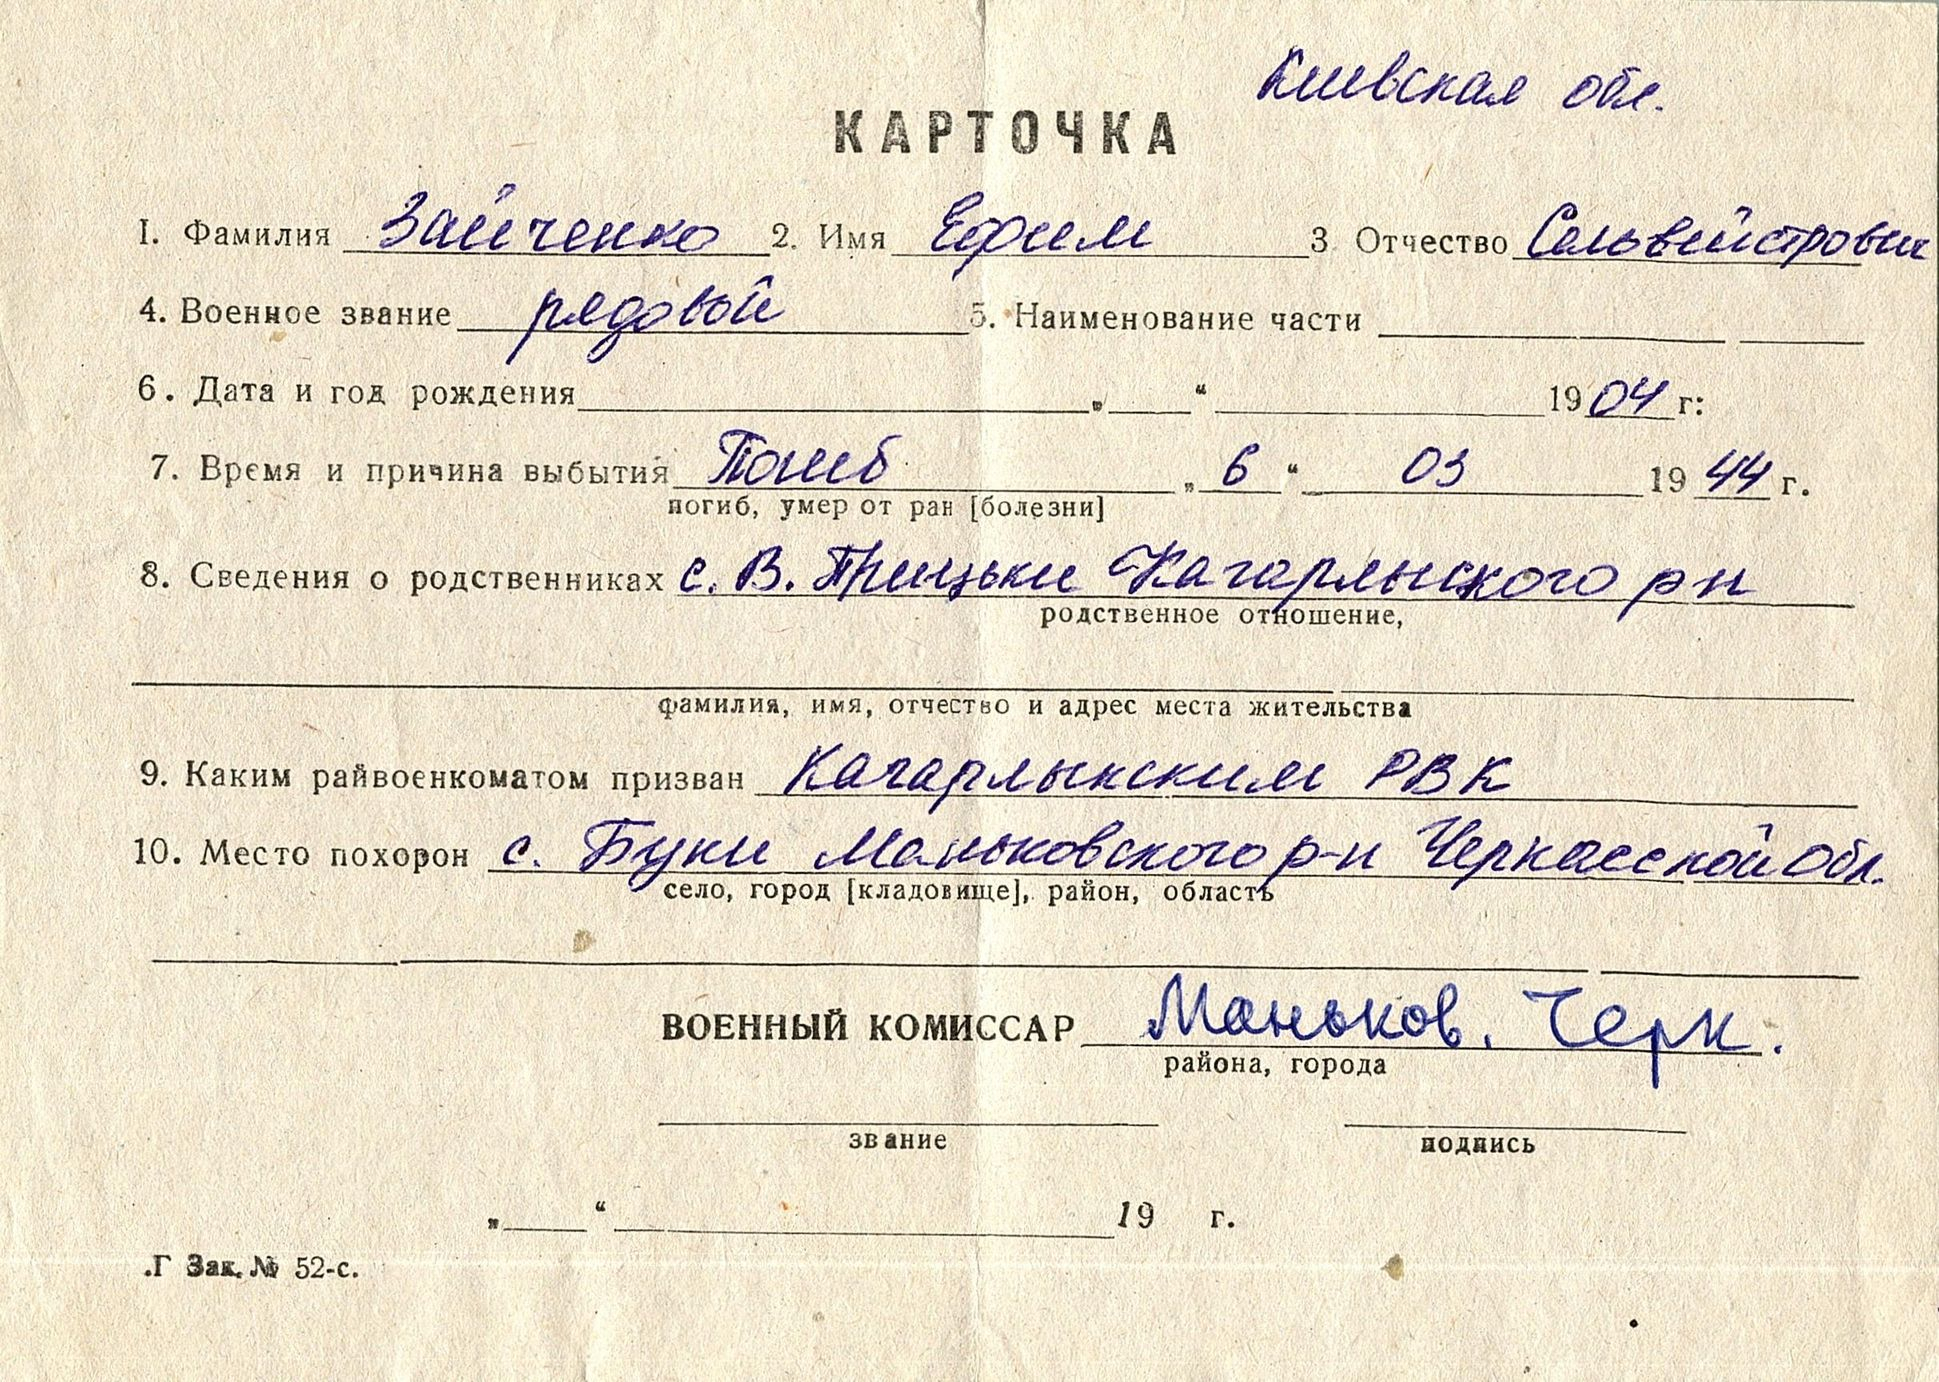 Киевская обл.
КАРТОЧКА
I. Фамилия Зайченко 2. Имя Ефим 3. Отчество Сельвейстрович
4. Военное звание рядовой 5. Наименование части
6. Дата и год рождения „ “ 1904 г:
7. Время и причина выбытия Погиб „ 6 “ 03 1944 г.
погиб, умер от ран [болезни]
8. Сведения о родственниках с. В. Прицьки Кагарлыского р н
родственное отношение,
фамилия, имя, отчество и адрес места жительства
9. Каким райвоенкоматом призван Кагарлыкским РВК
10. Место похорон с. Буки Маньковского р-н Черкасской обл.
село, город [кладовище], район, область
ВОЕННЫЙ КОМИССАР Маньков. Черк.
района, города
звание подпись
„ “ 19 г.
.Г Зак. № 52-с.